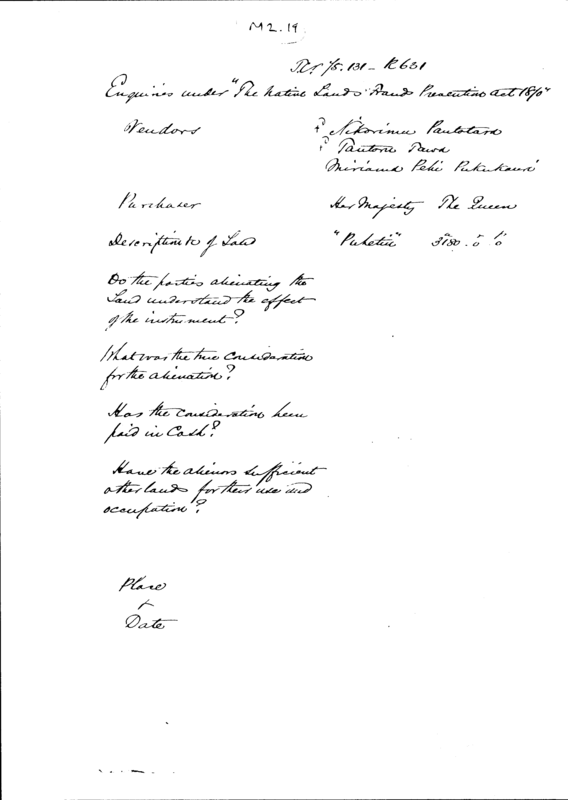 M2.19
131 - R631
Enquiries under "The Native Lands Frauds Prevention Act 1870"
Vendors
Pautotara
Tawa
Miriama Pehi Pukukauri
Purchaser Her Majesty The Queen
Description of Land "Puketiti" 3180. 0 0
Do the parties alienating the
Land understand the effect
of the instrument?
What was the true Consideration
for the alienation?
Has the consideration been
paid in Cash?
Have the alienors sufficient
other lands for their use and
occupation?
Place
+
Date